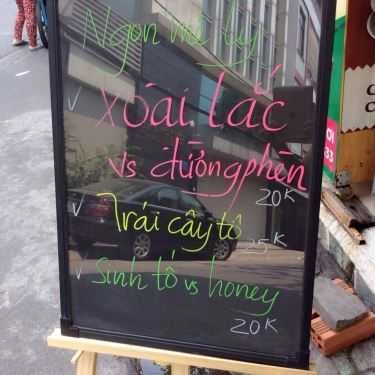 Ngon mê ly
Xoài lắc
vs đường phèn
20K
Trái cây tô
25K
Sinh tố vs honey
20K